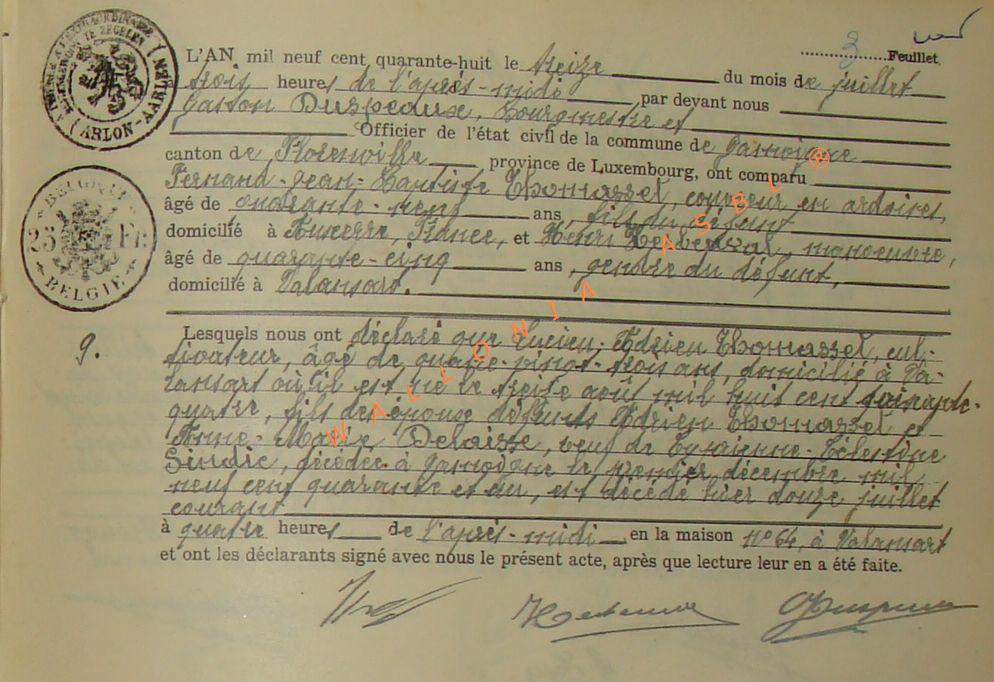 3 Feuillet
L'AN mil neuf cent quarante-huit le treize du mois de juillet
trois heures de l'après-midi par devant nous
Gaston Duspeaux, Bourgmestre et
Officier de l'état civil de la commune de Jamoigne
canton de Florenville province de Luxembourg, ont comparu
Fernand-Jean-Baptiste Thomasset, couvreur en ardoises,
âgé de quarante-neuf ans, fils du défunt
domicilié à Auxerre, France, et Henri manoeuvre,
âgé de quarante-cinq ans, gendre du défunt,
domicilié à Valansart.
9.
Lesquels nous ont déclaré que Lucien-Adrien Thomasset, cul-
tivateur, âgé de quatre-vingt-trois ans, domicilié à Va-
lansart où il est né le treize août mil huit cent soixante-
quatre, fils des époux défunts Adrien Thomasset et
Anne-Marie Delaisse, veuf de Célestine
Sindic, décédée à Jamoigne le premier décembre mil
neuf cent quarante et un, est décédé hier douze juillet
courant
à quatre heures de l'après-midi en la maison n° 64, à Valansart
et ont les déclarants signé avec nous le présent acte, après que lecture leur en a été faite.
ARLON-AARLEN
BELGIQUE
25 Fr
BELGIE
WALLONIA ASBL ®